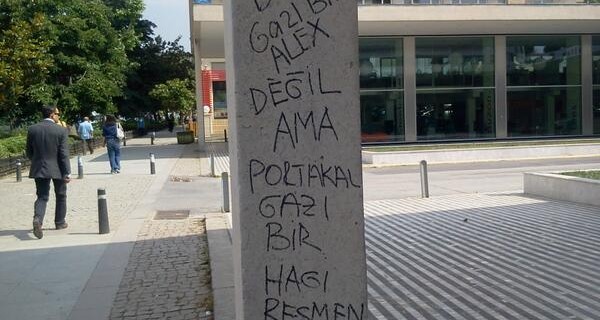 GAZİ Bİ
ALEX
DEĞİL
AMA
PORTAKAL
GAZI
BİR
HAGİ
RESMEN